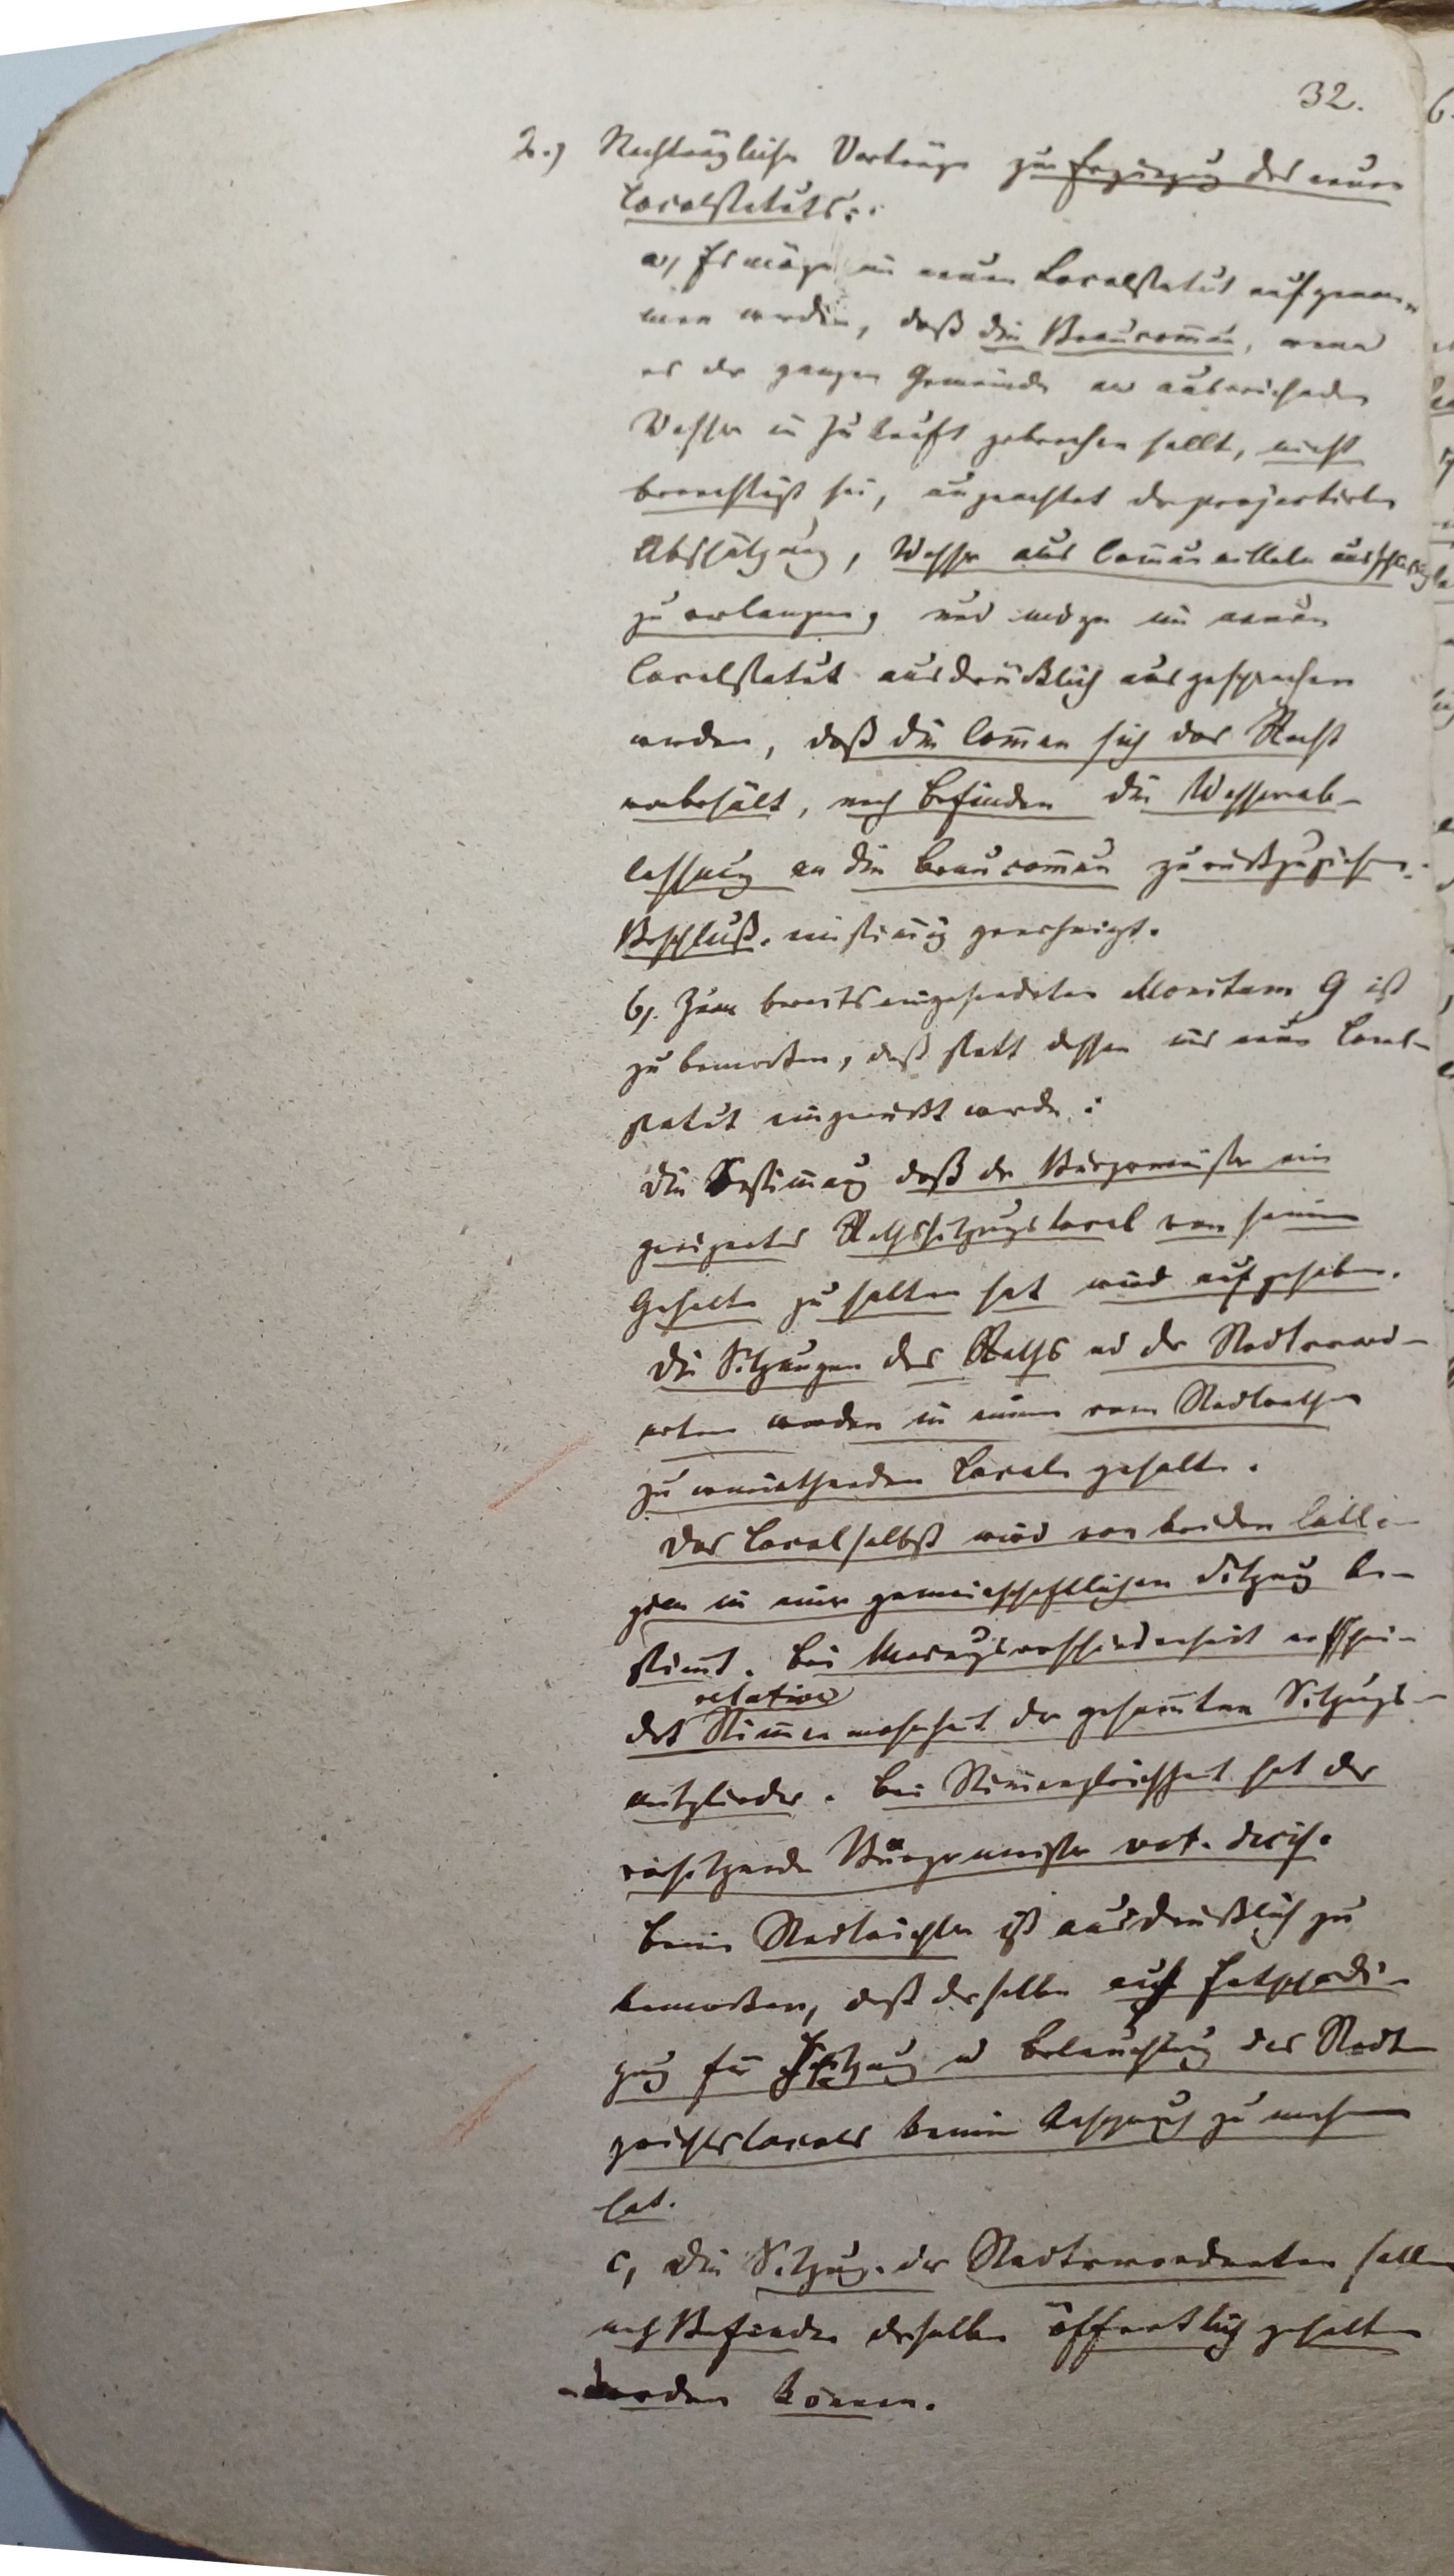 32.
2.) Nachträgliche Vorträge zur Ergänzung des neuen
Localstatuts:
a, Es möge im neuen Localstatut aufgenom-
men werden, daß die Braucom̄un, wenn
es der ganzen Gemeinde an ausreichenden
Wasser in Zukunft gebrechen sollt, nicht
berechtigt sei, ungeachtet der projectirten
Abschätzung, Wasser aus Com̄unmitteln ausschließlich
zu verlangen, und möge im neuen
Localstatut ausdrücklich ausgesprochen
werden, daß die Com̄un sich das Recht
vorbehält, nach Befinden die Wasserab-
lassung an die Braucom̄un zurückzuziehen.
Beschluß. einstim̄ig genehmigt.
b, Zum bereits eingesendeten Monitum 9 ist
zu bemerken, daß statt dessen ins neue Local-
statut eingerückt werde:
Die Bestim̄ung daß der Bürgermeister ein
geeignetes Rathssitzungslocal von seinem
Gehalte zu halten hat wird aufgehoben.
Die Sitzungen des Raths und der Stadtverord-
neten werden in einem vom Stadtrathe
zu ermiethenden Locale gehalten.
Das Local selbst wird von beiden Colle-
gien in einer gemeinschaftlichen Sitzung be-
stim̄t. Bei Meinungsverschiedenheit entschei-
relative
det Stim̄enmehrheit der gesam̄ten Sitzungs-
mitglieder. Bei Stim̄engleichheit hat der
vorsitzende Bürgermeister vot. decis.
Beim Stadtrichter ist ausdrücklich zu
bemerken, daß derselbe auf Entschädi-
gung für Heitzung u Beleuchtung des Stadt
gerichtslocales keinen Anspruch zu machen
hat.
c, Die Sitzung. der Stadtverordneten sollen
nach Befinden derselben öffentlich gehalten
werden können.